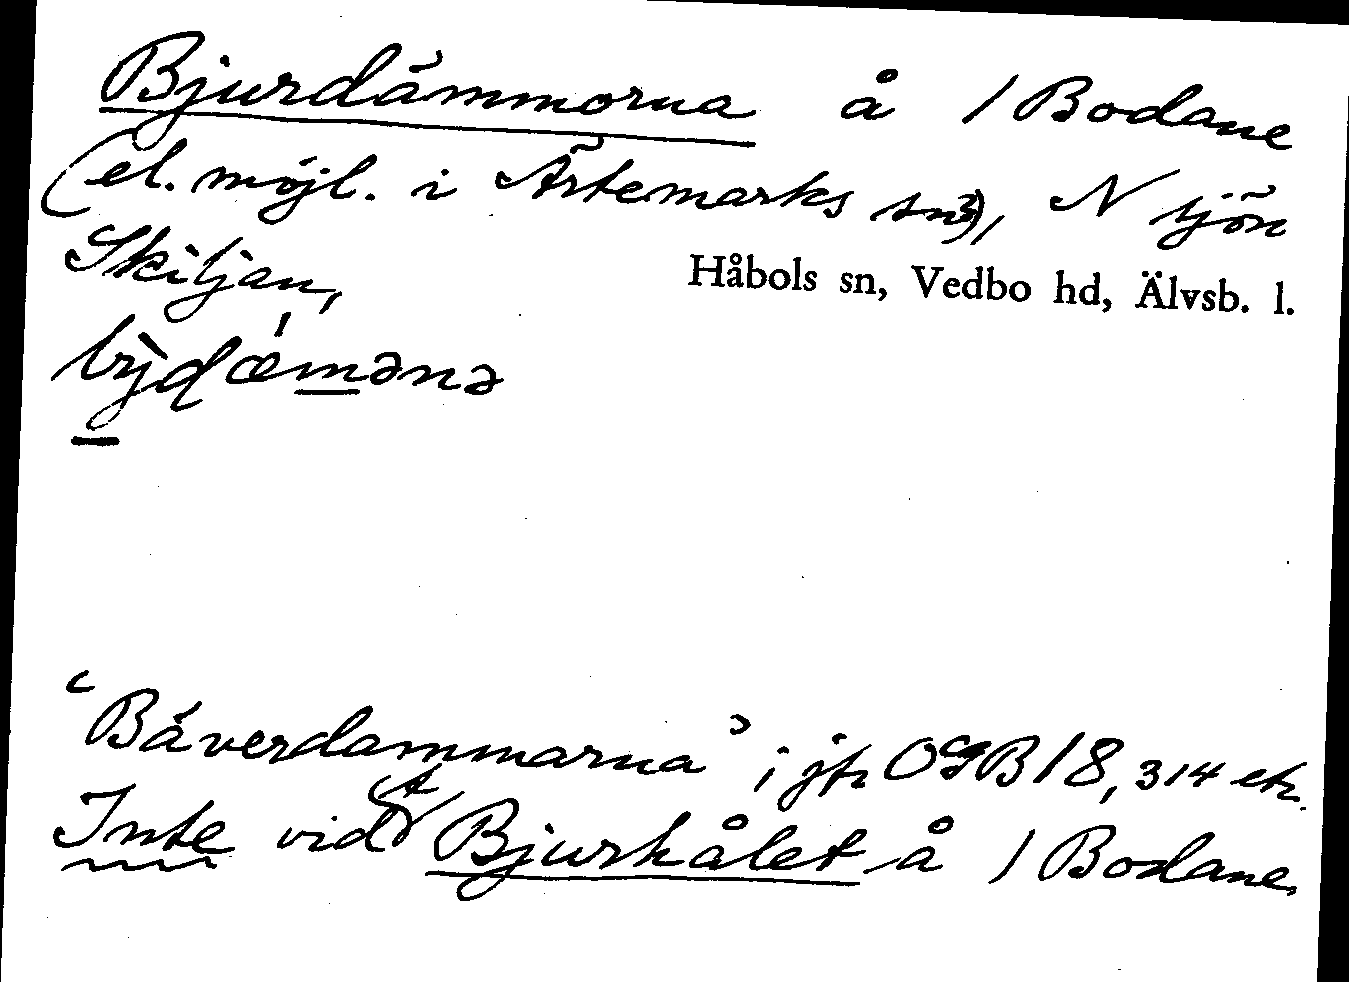 Bjurdämmorna å 1 Bodane
(el. möjl. i Ärtemarks sn), N sjön
Skiljan,
Håbols sn, Vedbo hd, Älvsb. l.
"Bäverdammarna"; jfr OGB 18, 314 etc.
Inte vid Bjurhålet å 1 Bodane.